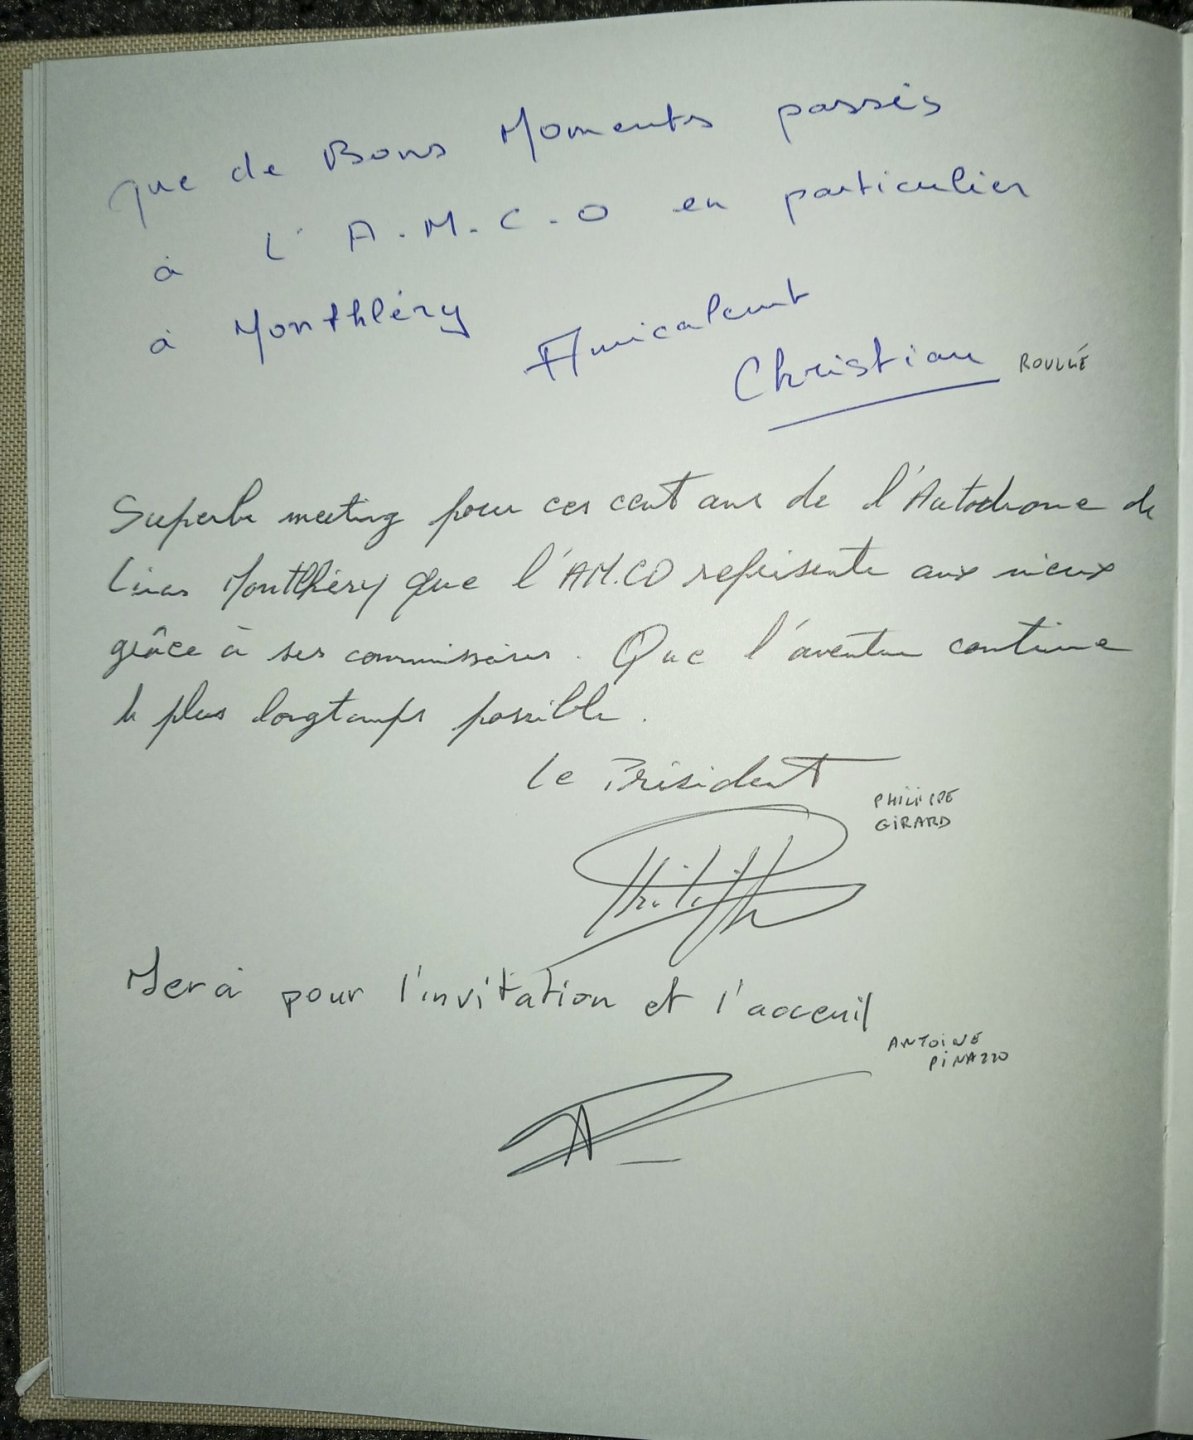 Que de Bons Moments passés
à l'A.M.C.O en particulier
à Monthléry
Amicalement
Christian ROULLÉ
Superbe meeting pour ces cent ans de l'Autodrome de
Linas Montlhéry que l'AM.CO représente aux mieux
grâce à ses commissaires. Que l'aventure continue
le plus longtemps possible.
Le Président
PHILIPPE
GIRARD
Philippe
Merci pour l'invitation et l'acceuil
ANTOINE
PINAZZO